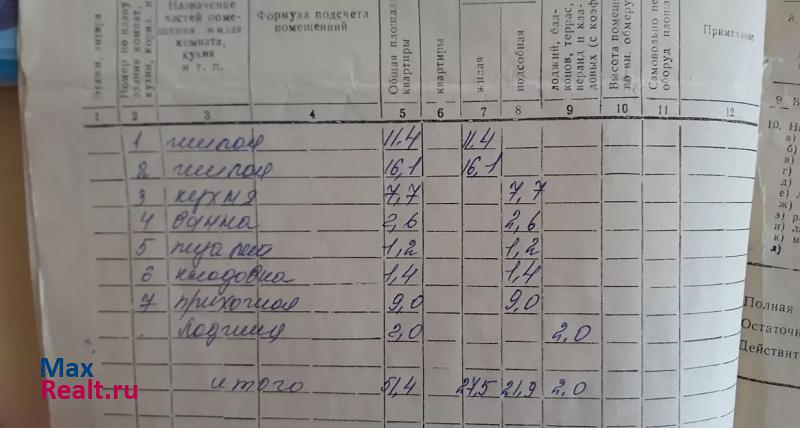 Этажи, литера
Номер по плану
здания комнат,
кухни, корид. и
Назначение
частей поме-
щения: жилая
комната,
кухня
и т. п.
Формула подсчета
помещений
Общая площадь
квартиры
квартиры
жилая
подсобная
лоджий, бал-
конов, террас,
веранд и кла-
довых (с коэф
Высота помеще
по вн. обмеру
Самовольно пе
оборуд. площа
Примечание
1 2 3 4 5 6 7 8 9 10 11 12
1 жилая 11.4 11.4
2 жилая 16,1 16,1
3 кухня 7,7 7,7
4 ванна 2,6 2,6
5 туалет 1,2 1,2
6 кладовка 1,4 1,4
7 прихожая 9,0 9,0
Лоджия 2,0 2,0
итого 51,4 27,5 21,9 2,0
9
10. На
а)
б)
в)
г)
д)
е)
ж)
з)
и)
к)
л)
Полная
Остаточн
Действит
Max
Realt.ru